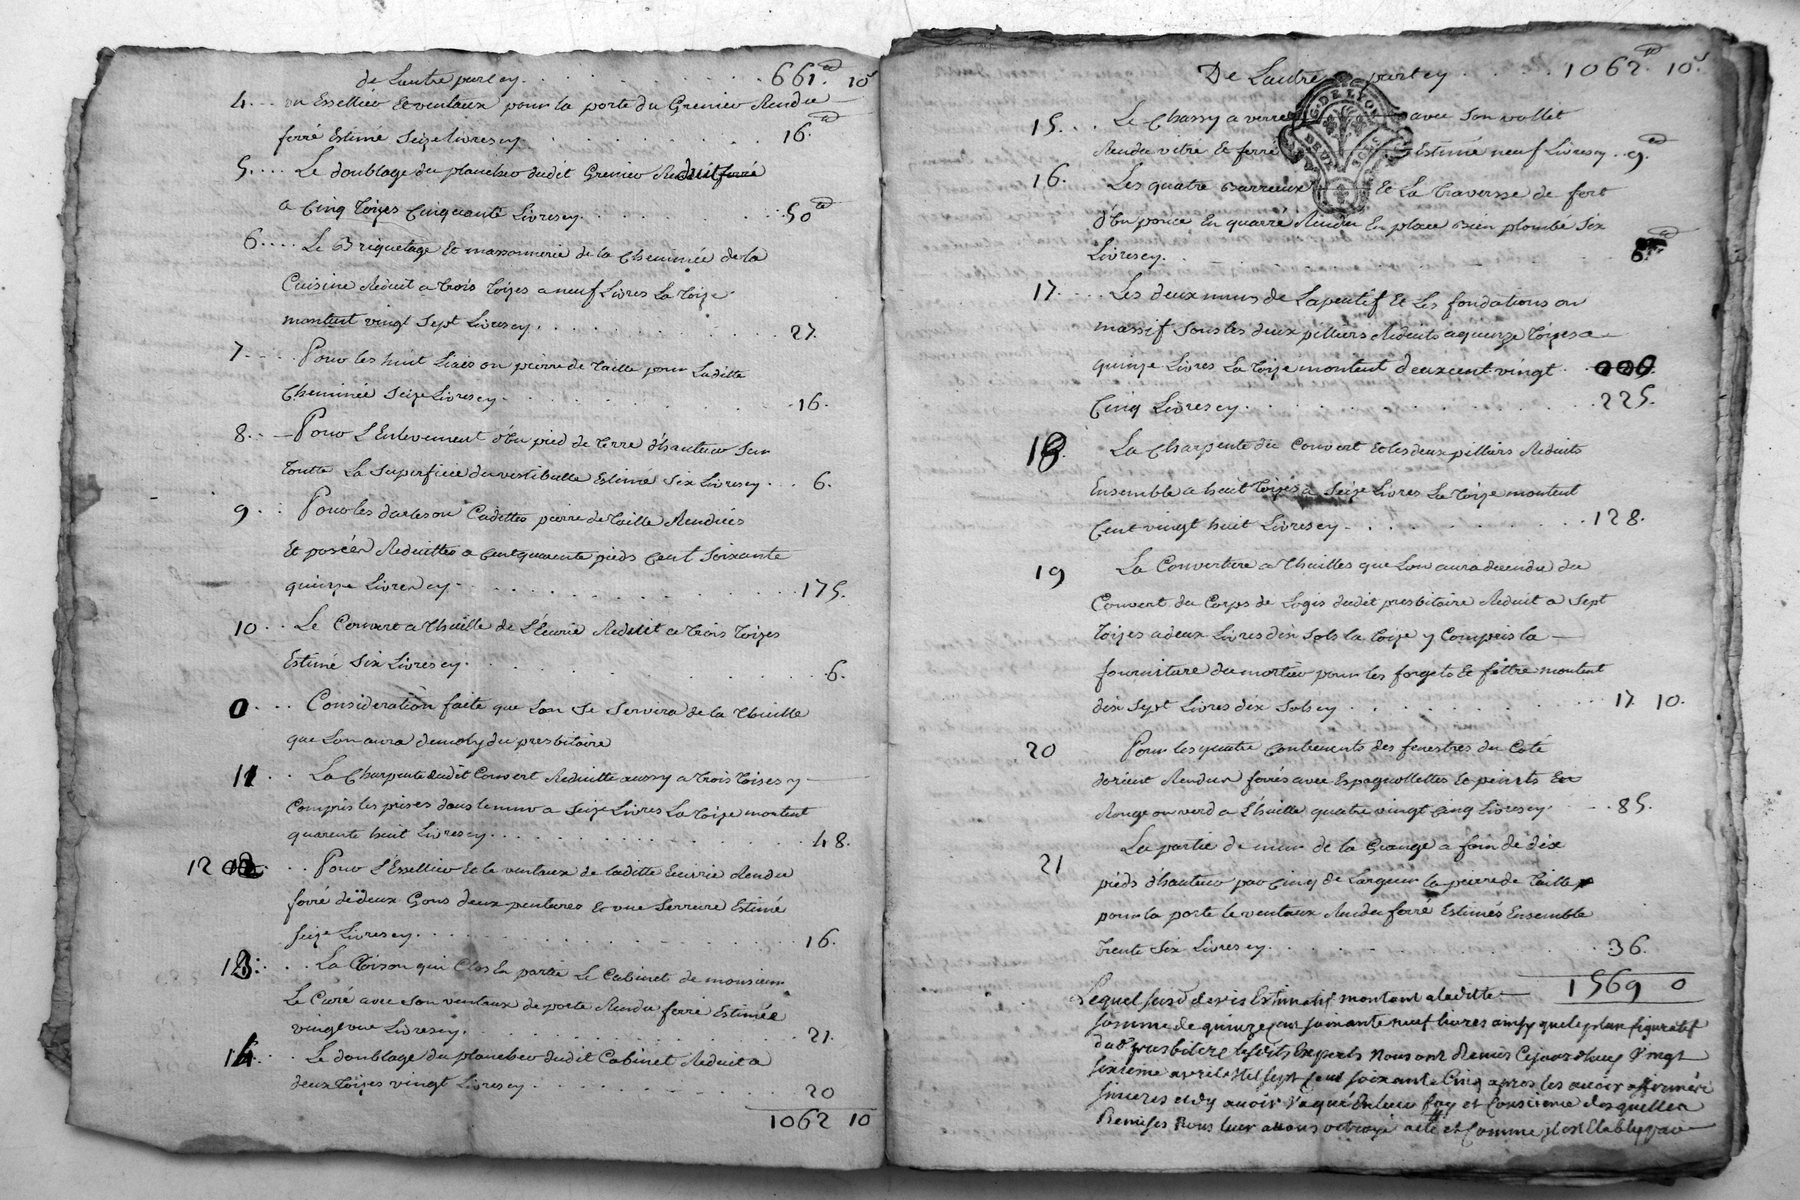 de Lautre part cy . . . 661.ᵗᵗ 10ˢ
4. . . un Essellier Et ventaux pour la porte du Grenier Rendu
ferré Estimé Seize Livres cy . . . 16.ᵗᵗ
5. . . . Le doublage du plancher dudit Grenier Reduit ferré
a Cinq Toizes Cinquante Livres cy . . . 50ᵗᵗ
6. . . . Le Briquetage Et massonnerie de la Cheminée de la
Cuisine Reduit a trois Toizes a neuf Livres La Toize
montent vingt Sept Livres cy . . . 27.
7. . . . Pour les huit Liais ou pierre de Taille pour Laditte
Cheminée Seize Livres cy . . . 16.
8. . . Pour L'Enlevement d'Un pied de terre d'hauteur Sur
toutte La Superficie du vestibulle Estimé Six Livres cy . . . 6.
9. . Pour les dales ou Cadettes pierre de Taille Rendües
Et posées Reduittes a Cent quarente pieds Cent Soixante
quinze Livres cy . . . 175.
10. . . Le Couvert a Thuille de L'Ecurie Reduit a trois Toizes
Estimé Six Livres cy . . . 6.
0. . . Consideration faite que Lon Se Servira de la Thuille
que Lon aura demoly du presbitaire
11. . . La Charpente dudit Couvert Reduitte aussy a trois Toises y
Compris les prises dans le mur a Seize Livres La Toize montent
quarente huit Livres cy . . . 48.
12 . . Pour L'Essellier Et le ventaux de laditte Ecurie Rendu
ferré de deux Gons deux pentures Et une Serrure Estimé
Seize Livres cy . . . 16.
13. . . La Cloison qui Clos En partie Le Cabinet de monsieur
Le Curé avec Son ventaux de porte Rendu ferré Estimée
vingt une Livres cy . . . 21.
14. . . Le doublage du plancher dudit Cabinet Reduit a
deux Toizes vingt Livres cy . . . 20
1062 10
De Lautre part cy . . . 1062.ᵗᵗ 10.ˢ
G. DE LYON
DEUX SOLS
15. . . Le Chassy a verre avec Son vollet
Rendu vitré Et ferré Estimé neuf Livres cy . . 9.ᵗᵗ
16. Les quatre Barreaux Et La Traversse de fert
d'Un pouce En quarré Rendu En place Bien plombé Six
Livres cy . . . 6.ᵗᵗ
17. . . . Les deux murs de Lapentif Et Les fondations ou
massif Sous les deux pilliers Reduits a quinze Toizes a
quinze Livres La Toize montent deux cent vingt
Cinq Livres cy . . . 225.
18. La Charpente du Couvert Et les deux pilliers Reduits
Ensemble a huit Toizes a Seize Livres La Toize montent
Cent vingt huit Livres cy . . . 128.
19 La Couverture a Thuilles que Lon aura de
Couvert du Corps de Logis dudit presbitaire Reduit a Sept
Toizes a deux Livres dix Sols la Toize y Compris la
fourniture du mortier pour les forgets Et faitre montent
dix Sept Livres dix Sols cy . . . 17 10.
20 Pour les quatre Contrevents des fenestres du Coté
dorient Rendus ferrés avec Espagnollettes Et peints En
Rouge ou verd a L'huille quatre vingt Cinq Livres cy . . . 85.
21 La partie de mur de la Grange a foin de dix
pieds d'hauteur par Cinq de Largeur la pierre de Taille
pour la porte le ventaux Rendu ferré Estimés Ensemble
trente Six Livres cy . . . 36.
1569 0
Lequel susd. devis Estimatif montant a laditte
somme de quinze cent soixante neuf livres ainsy que le plan figuratif
dud. presbitere lesdits Experts Nous ont Remis Cejourdhuy vingt
sixieme avril mil sept cent soixante Cinq apres les avoir affirmés
sinceres et dy avoir vaqué En leur foy et Conscience desquelles
Remises Nous leur avons octroyé acte et Comme